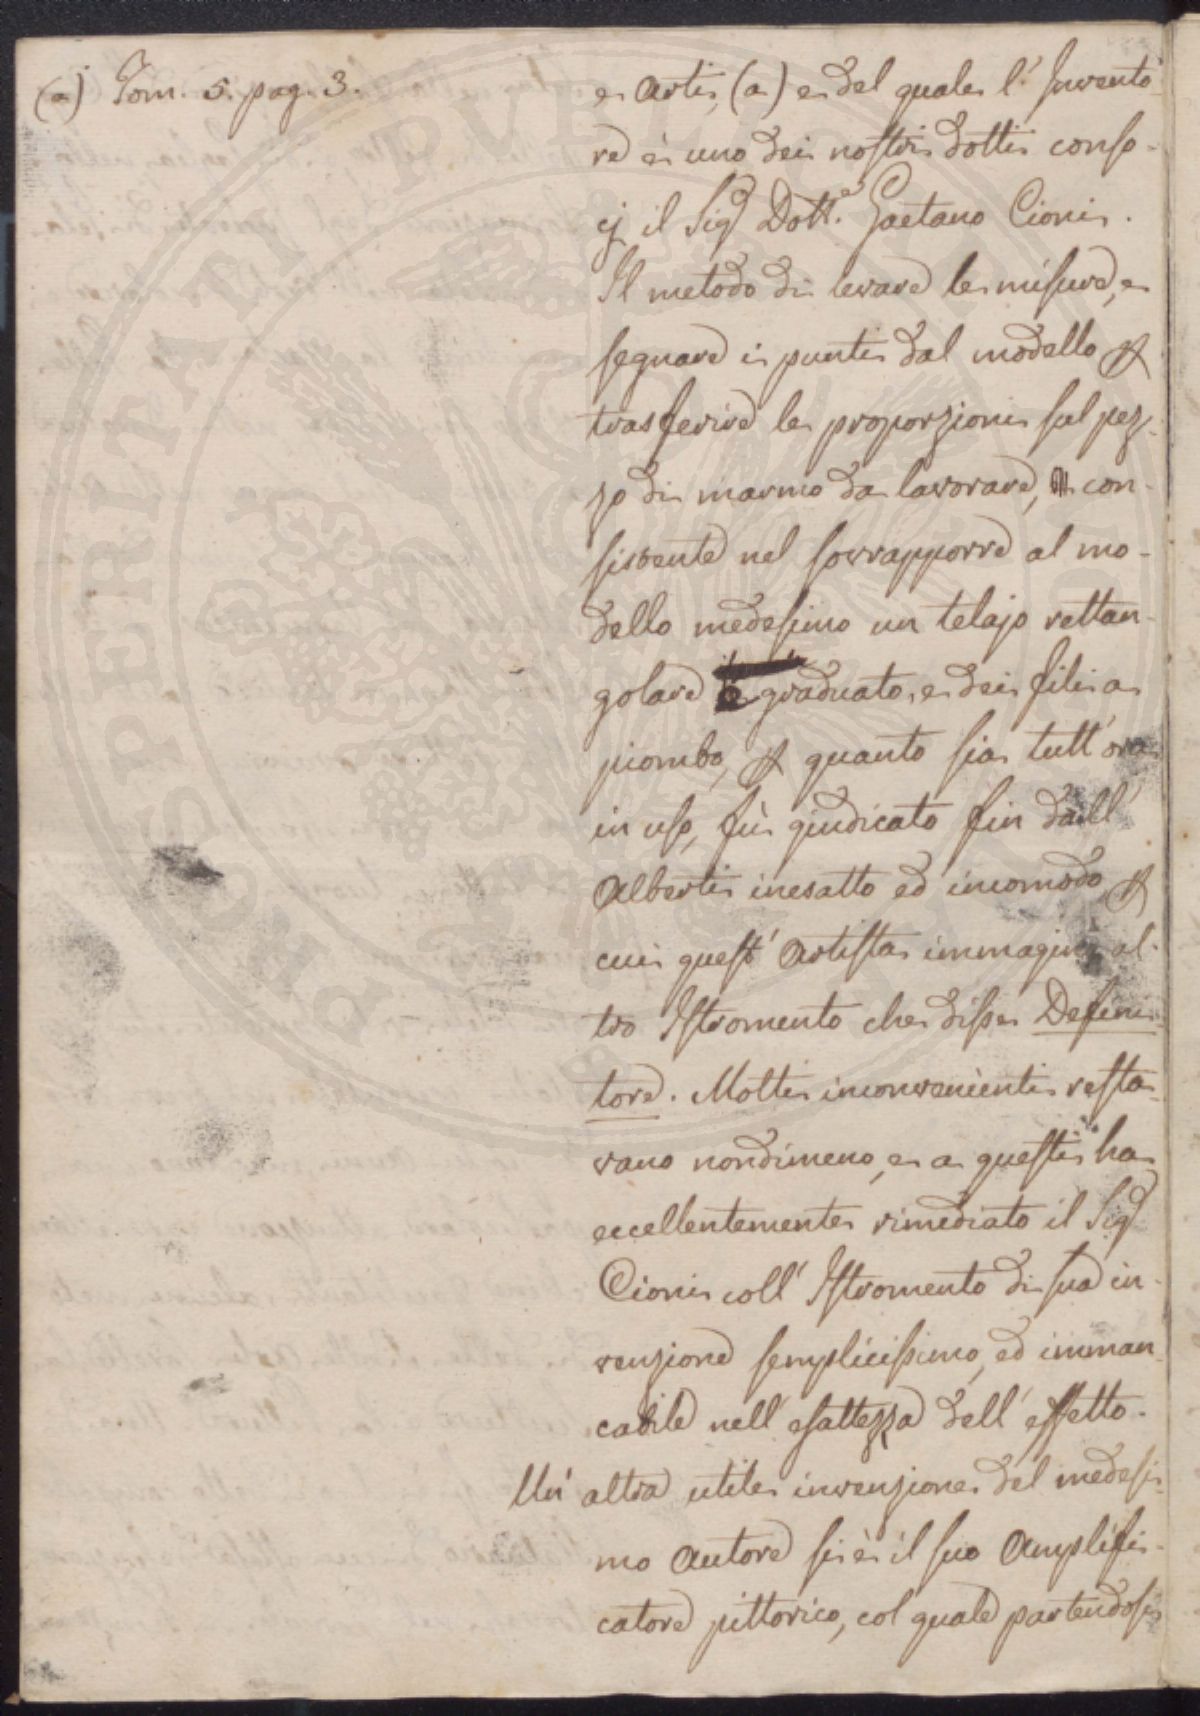 (a) Tom. 5. pag. 3.
e Arti, (a) e del quale l'Invento
re è uno dei nostri dotti conso-
cj il Sig.r Dott.e Gaetano Cioni.
Il metodo di levare le misure, e
segnare i punti dal modello p
trasferire le proporzioni sul pez-
zo di marmo da lavorare, con-
sistente nel sovrapporre al mo-
dello medesimo un telajo rettan-
golare e graduato, e dei fili a
piombo, p quanto sia tutt'ora
in uso, fù giudicato fin dall'
Alberti inesatto ed incomodo, p
cui quest'Artista immaginò al-
tro Istromento che disse Defini-
tore. Molti inconvenienti resta-
vano nondimeno, e a questi ha
eccellentemente rimediato il Sig.r
Cioni coll'Istromento di sua in-
venzione semplicissimo, ed imman-
cabile nell'esattezza dell'effetto.
Un'altra utile invenzione del medesi-
mo Autore si è il suo Amplifi-
catore pittorico, col quale partendosi
PROSPERITATI PUBLICAE